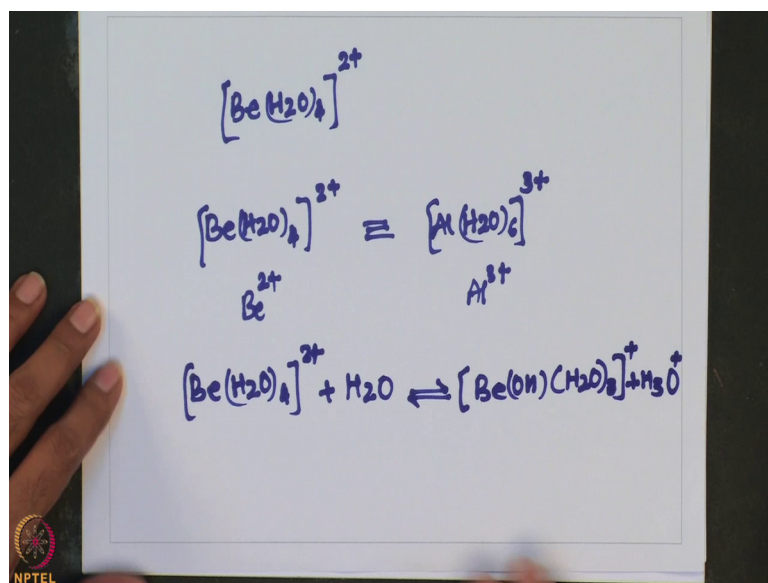 [Be(H2O)4]2+
[Be(H2O)4]2+ ≡ [Al(H2O)6]3+
Be2+ Al3+
[Be(H2O)4]2+ + H2O ⇌ [Be(OH)(H2O)3]+ + H3O+
NPTEL